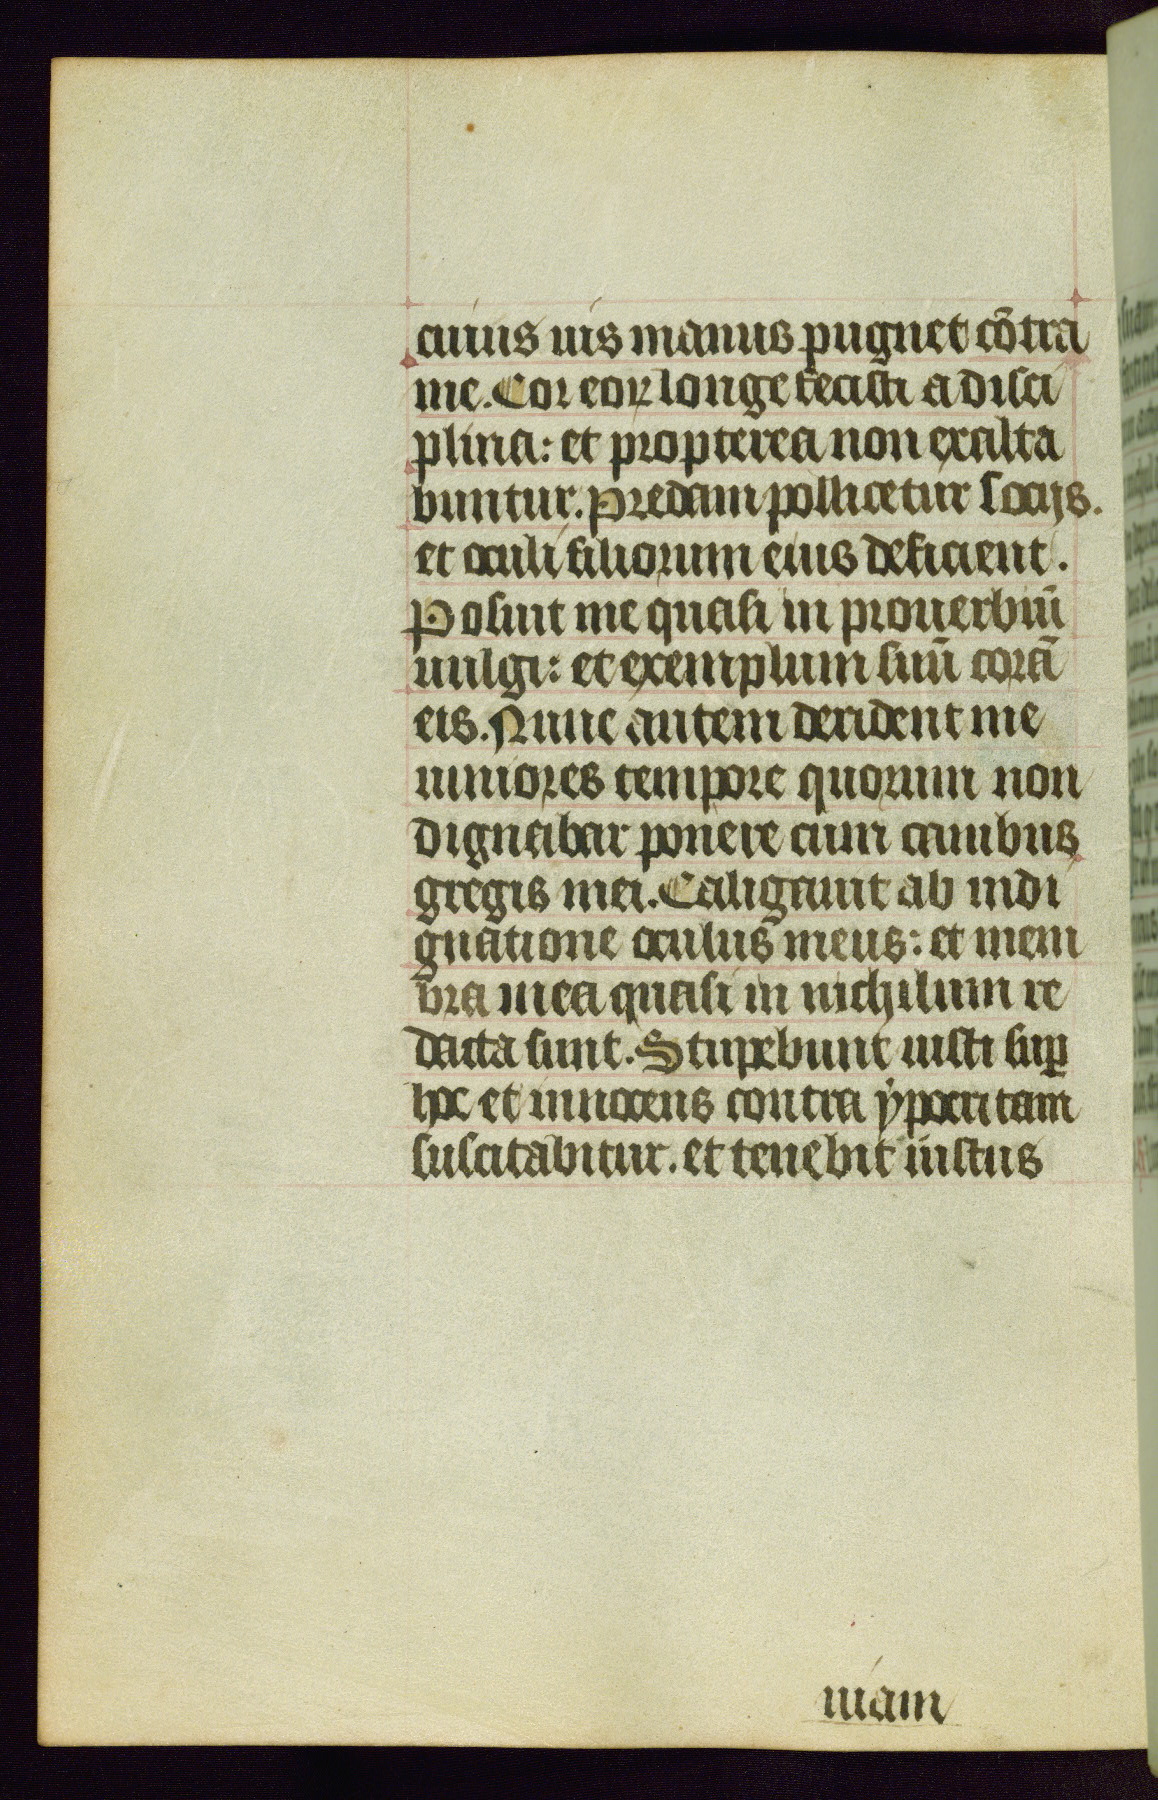 cuius uis manus pugnet cōtra
me. Cor eoꝝ longe fecisti a disci
plina: et propterea non exalta
buntur. Predam pollicetur socijs.
et oculi filiorum eius deficient.
Posuit me quasi in prouerbiū
uulgi: et exemplum suū corā
eis. Nunc autem derident me
iuniores tempore quorum non
dignabar ponere cum canibus
gregis mei. Caligauit ab indi
gnatione oculus meus: et mem
bra mea quasi in nichilum re
dacta sunt. Stupebunt iusti suꝑ
hoc et innocens contra ypocritam
suscitabitur. et tenebit iustus
uiam